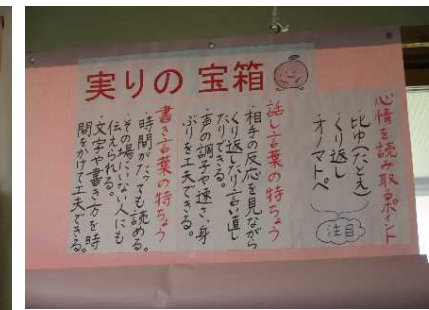 実りの宝箱
心情を読み取るポイント
・比ゆ(たとえ)
・くり返し
・オノマトペ
注目
話し言葉の特ちょう
・相手の反応を見ながら
くり返したり言い直し
たりできる。
・声の調子や速さ、身
ぶりを工夫できる。
書き言葉の特ちょう
・時間がたっても読める。
・その場にいない人にも
伝えられる。
・文字や書き方を時
間をかけて工夫できる。